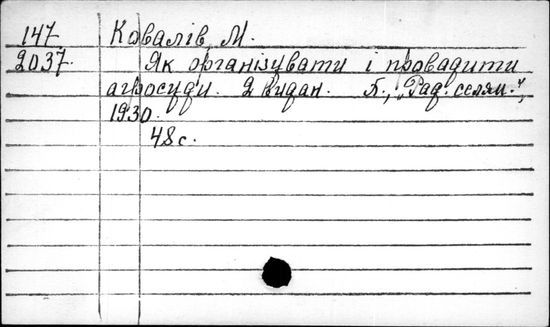 147 Ковалів, М.
2037. Як організувати і провадити
агросуди. 2 видан. Х., "Рад. селян.",
1930.
48 с.